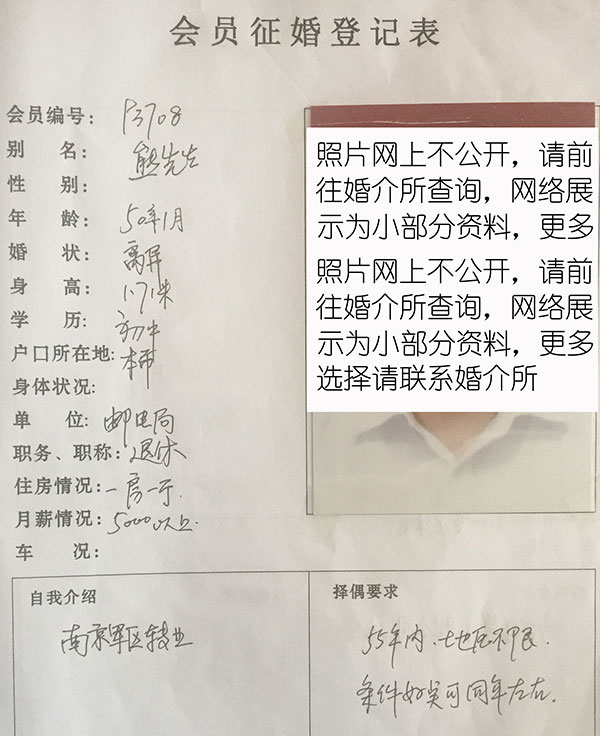 会员征婚登记表
会员编号: P3708
别 名: 熊先生
性 别:
年 龄: 50年1月
婚 状: 离异
身 高: 1.71米
学 历: 初中
户口所在地: 本市
身体状况:
单 位: 邮电局
职务、职称: 退休
住房情况: 一房一厅.
月薪情况: 5000以上.
车 况:
照片网上不公开，请前
往婚介所查询，网络展
示为小部分资料，更多
照片网上不公开，请前
往婚介所查询，网络展
示为小部分资料，更多
选择请联系婚介所
自我介绍
南京军区转业
择偶要求
55年内.地区不限.
条件好点可同年左右.